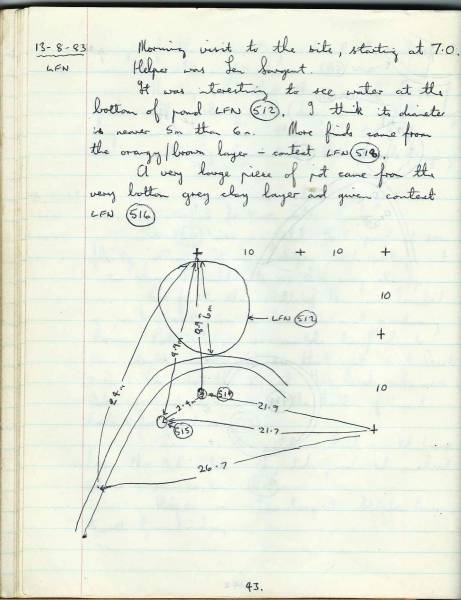 13-8-83
LFN
Morning visit to the site, starting at 7.0.
Helper was Len Sargent.
It was interesting to see water at the
bottom of pond LFN 512. I think its diameter
is nearer 5m than 6m. More finds came from
the orangy/brown layer - contest LFN 518.
A very large piece of pot came from the
very bottom grey clay layer and given contest
LFN 516
+ 10 + 10 +
10
LFN 512
+
6m
10
2.4m
21.9
515
21.7
+
26.7
43.